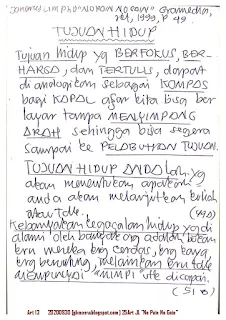 Gramedia,
1999, P 49.
TUJUAN HIDUP
Tujuan hidup yg BERFOKUS, BER-
HARGA, dan TERTULIS, dapat
di analogikan sebagai KOMPAS
bagi KAPAL agar kita bisa ber
layar tanpa MENYIMPANG
ARAH sehingga bisa segera
sampai ke PELABUHAN TUJUAN.
TUJUAN HIDUP ANDA lah yg
akan menentukan apakah
anda akan melanjutkan kuliah
atau tdk.
Kebanyakan kegagalan hidup yg di
alami oleh banyak org adalah bukan
krn mereka krg cerdas, krg uang
krg beruntung, melainkan krn tdk
mempunyai MIMPI utk dicapai.
(P. 51)
Art 13 20200930 [gkmenr.blogspot.com] 25Art JL "No Pain No Gain"